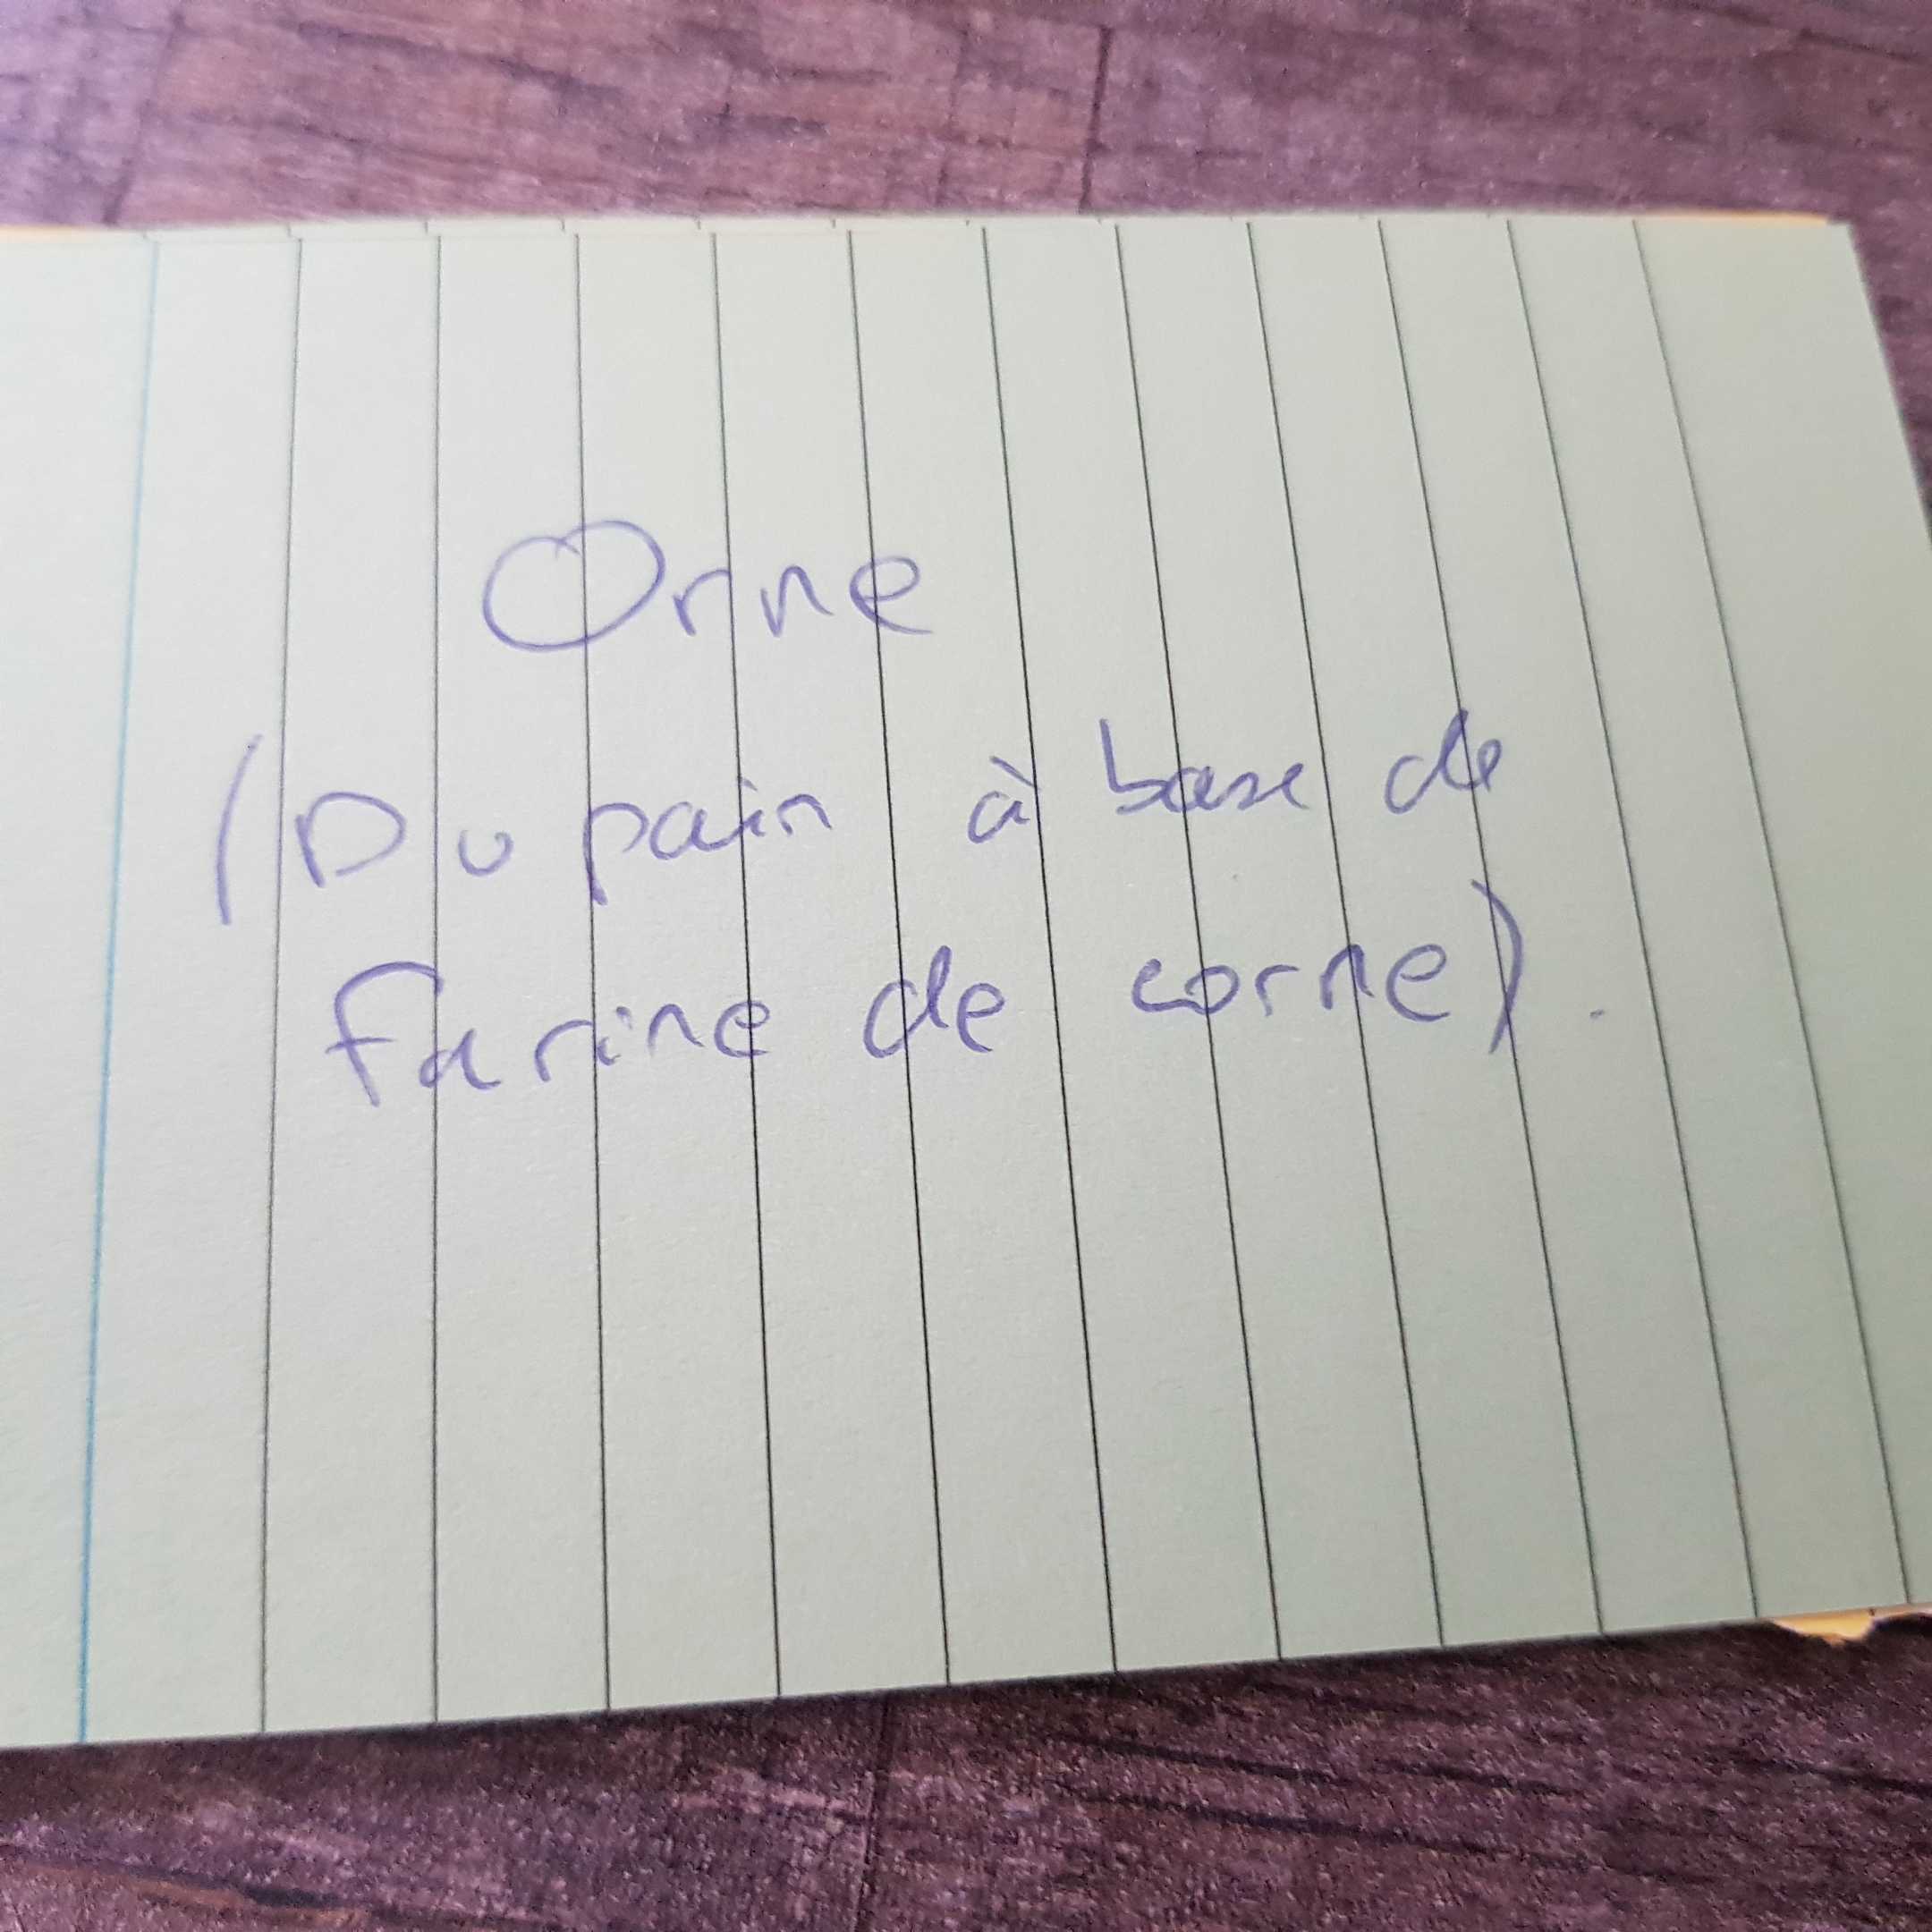 Orne
(Du pain à base de
farine de corne).